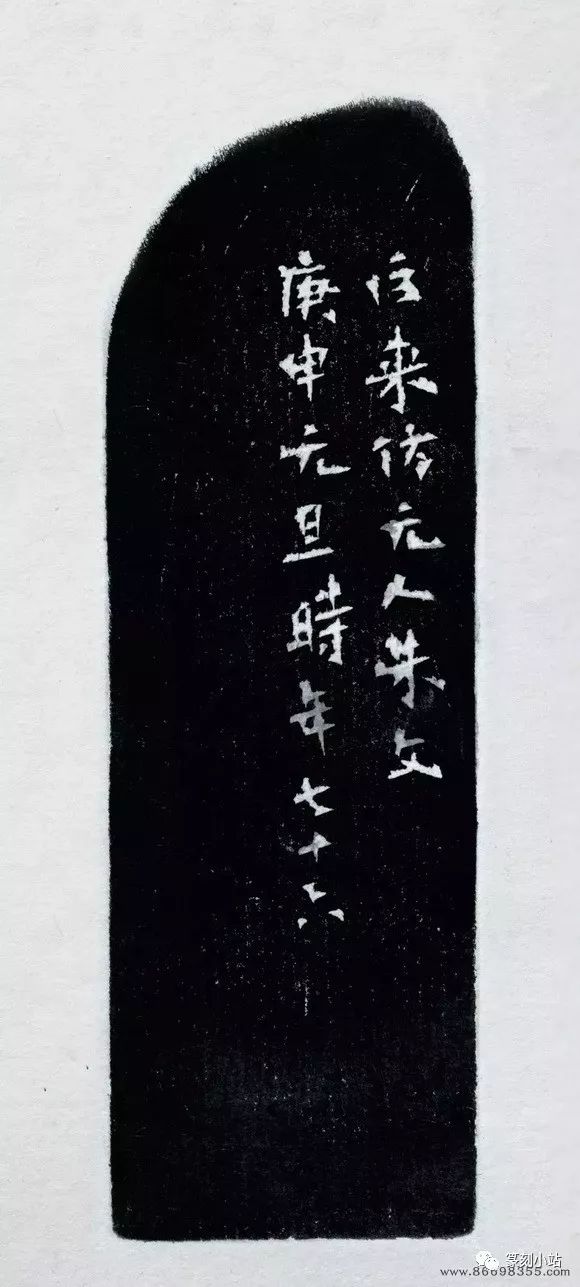 巨来仿元人朱文
庚申元旦時年七十六
篆刻小站
www.86698355.com